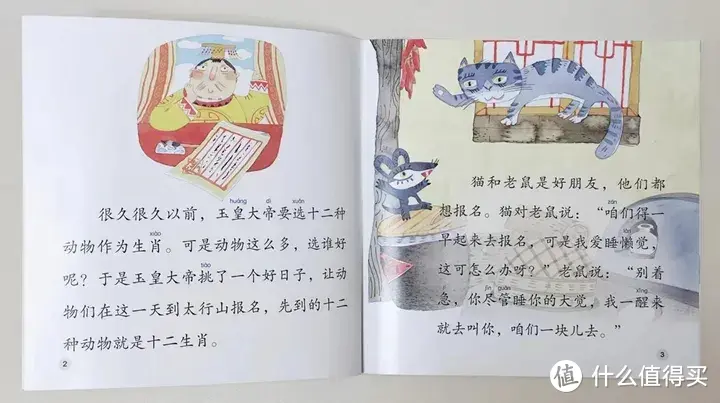 huáng dì xuǎn
很久很久以前，玉皇大帝要选十二种
xiāo
动物作为生肖。可是动物这么多，选谁好
tiāo
呢？于是玉皇大帝挑了一个好日子，让动
物们在这一天到太行山报名，先到的十二
种动物就是十二生肖。
2
猫和老鼠是好朋友，他们都
zán
想报名。猫对老鼠说：“咱们得一
lǎn
早起来去报名，可是我爱睡懒觉，
这可怎么办呀？”老鼠说：“别着
jí jǐn guǎn xǐng
急，你尽管睡你的大觉，我一醒来
就去叫你，咱们一块儿去。”
3
值 什么值得买